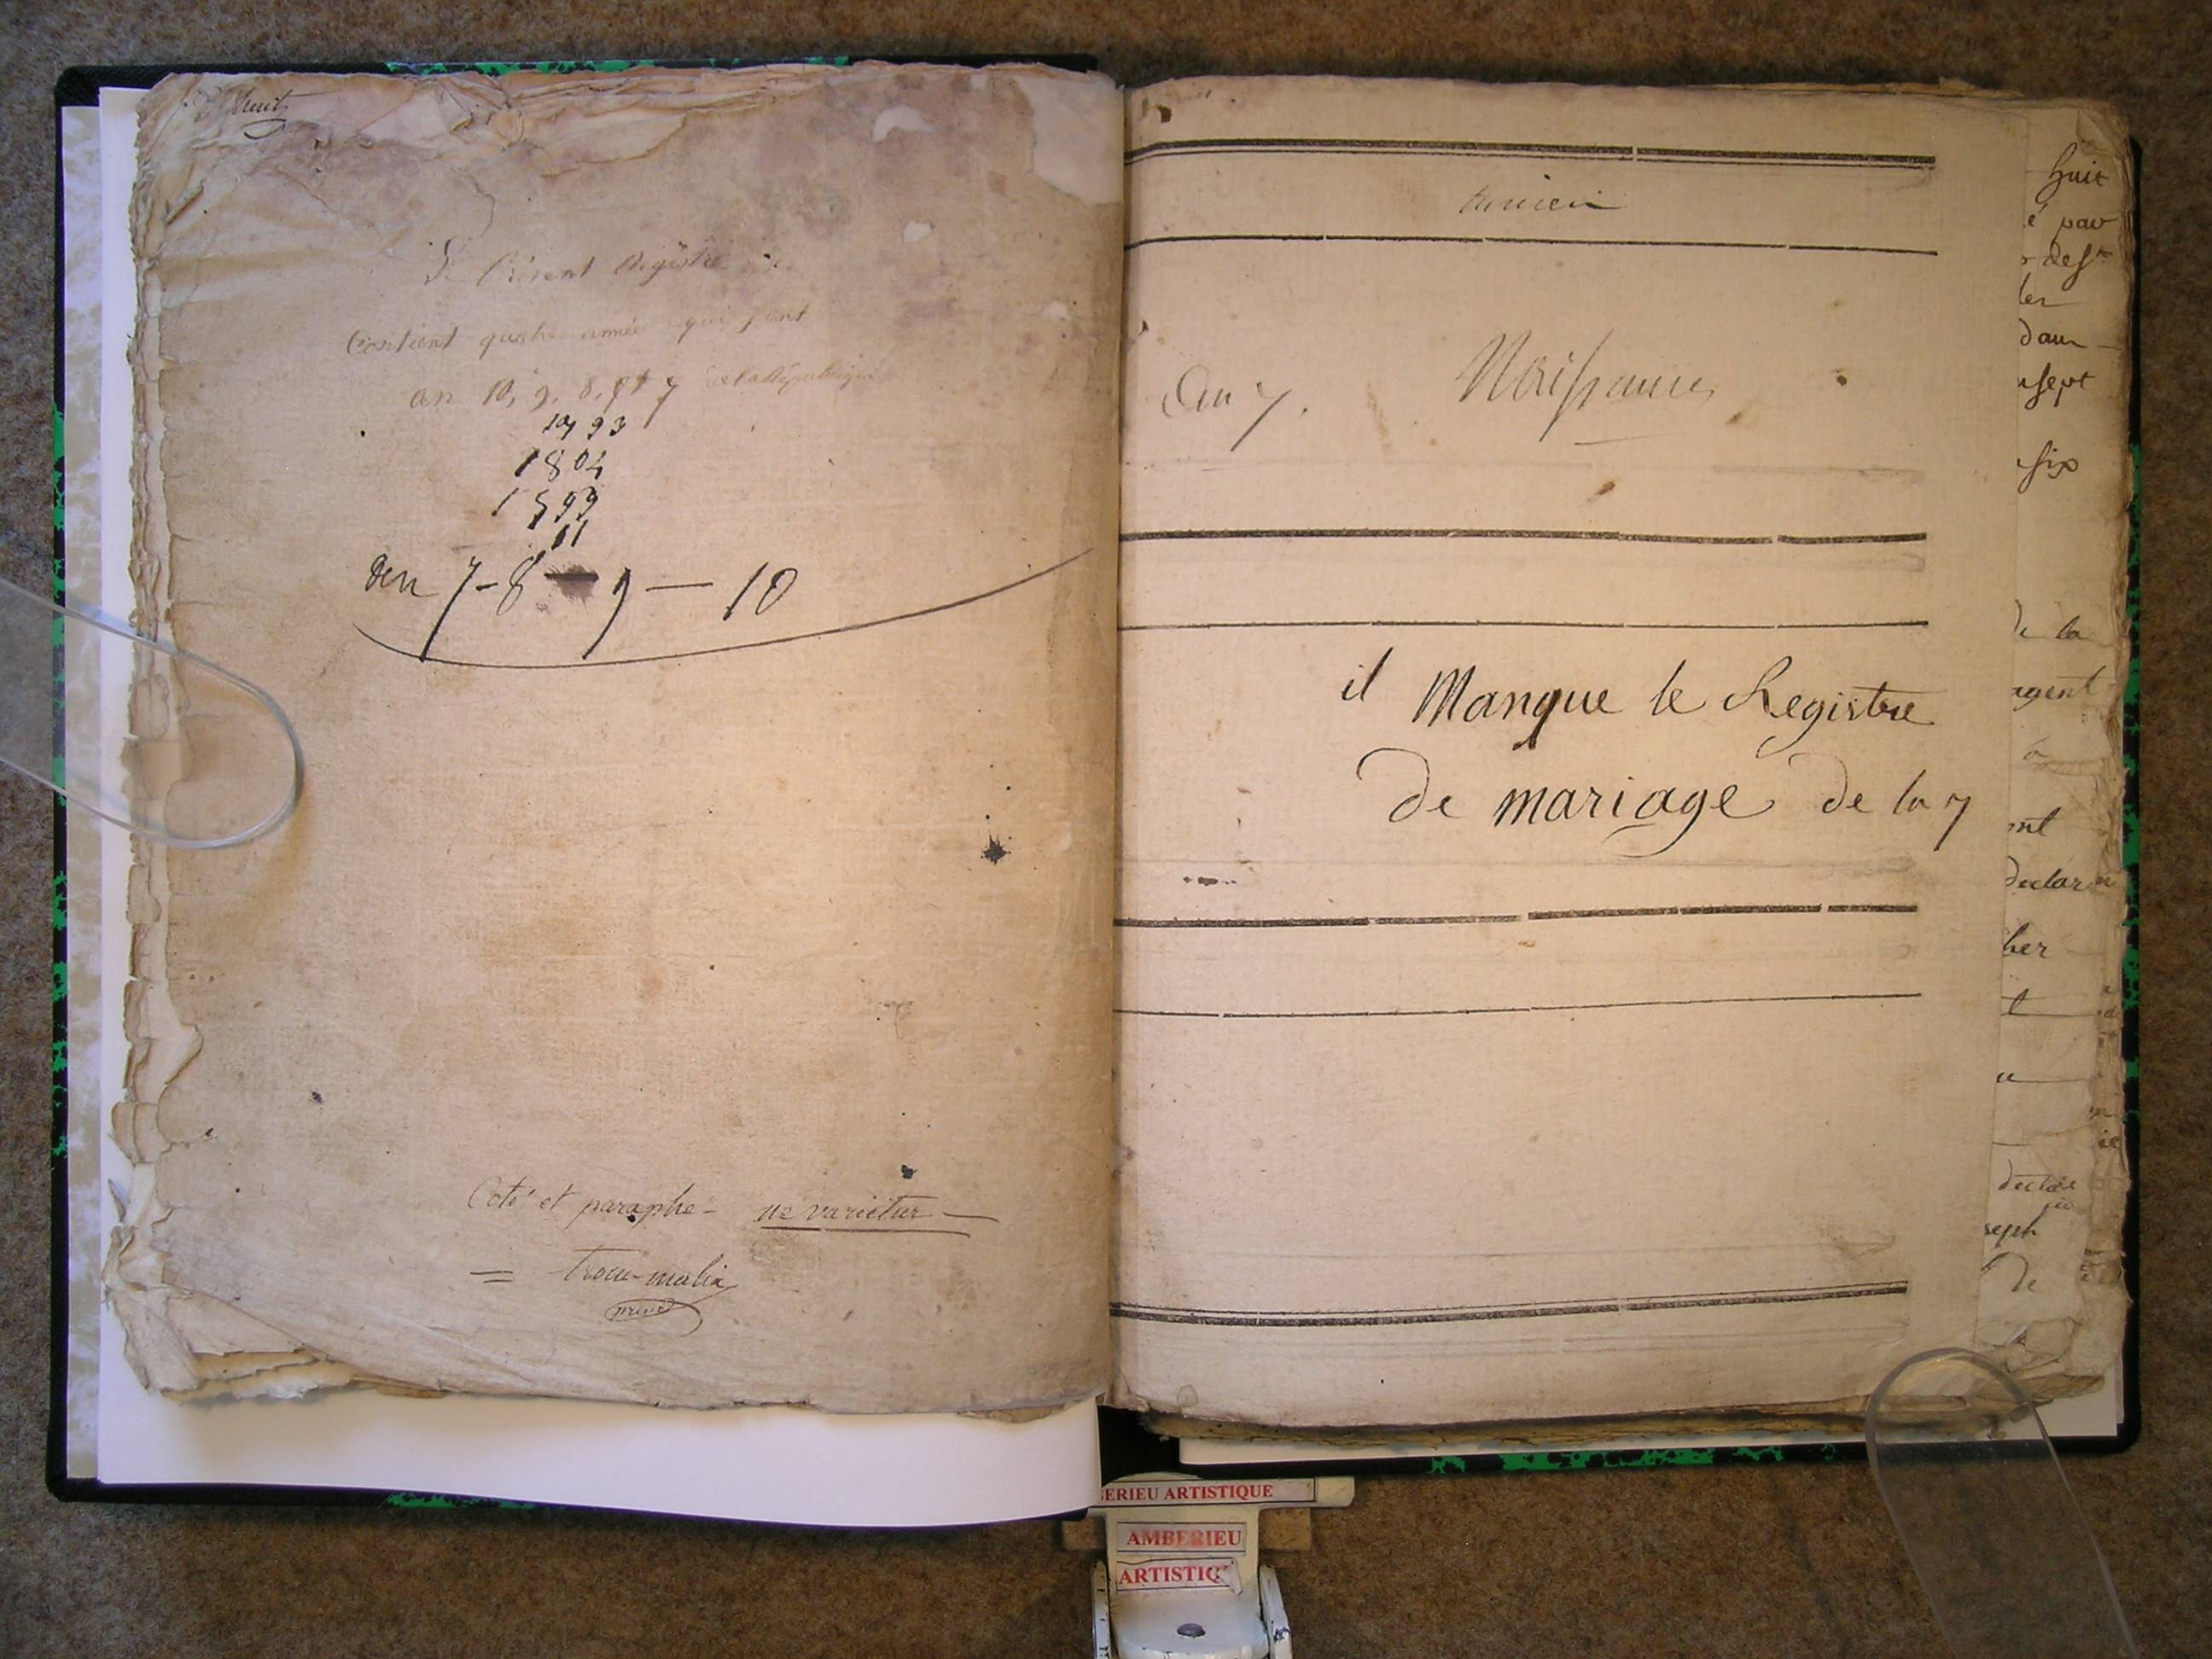 huit
Le Présent Registre
Contient quatre année qui sont
an 10, 9, 8, et 7 de la République
1793
1804
1799
11
den 7-8 - 9 - 10
Coté et paraphe - ne varietur -
=
Naissances
An 7.
il Manque le Registre
De mariage de la 7
huit
é par
ler
dau
sept
six
de la
agent
à
ent
declar
ber
t
seph
de
BERIEU ARTISTIQUE
AMBERIEU
ARTISTIQ